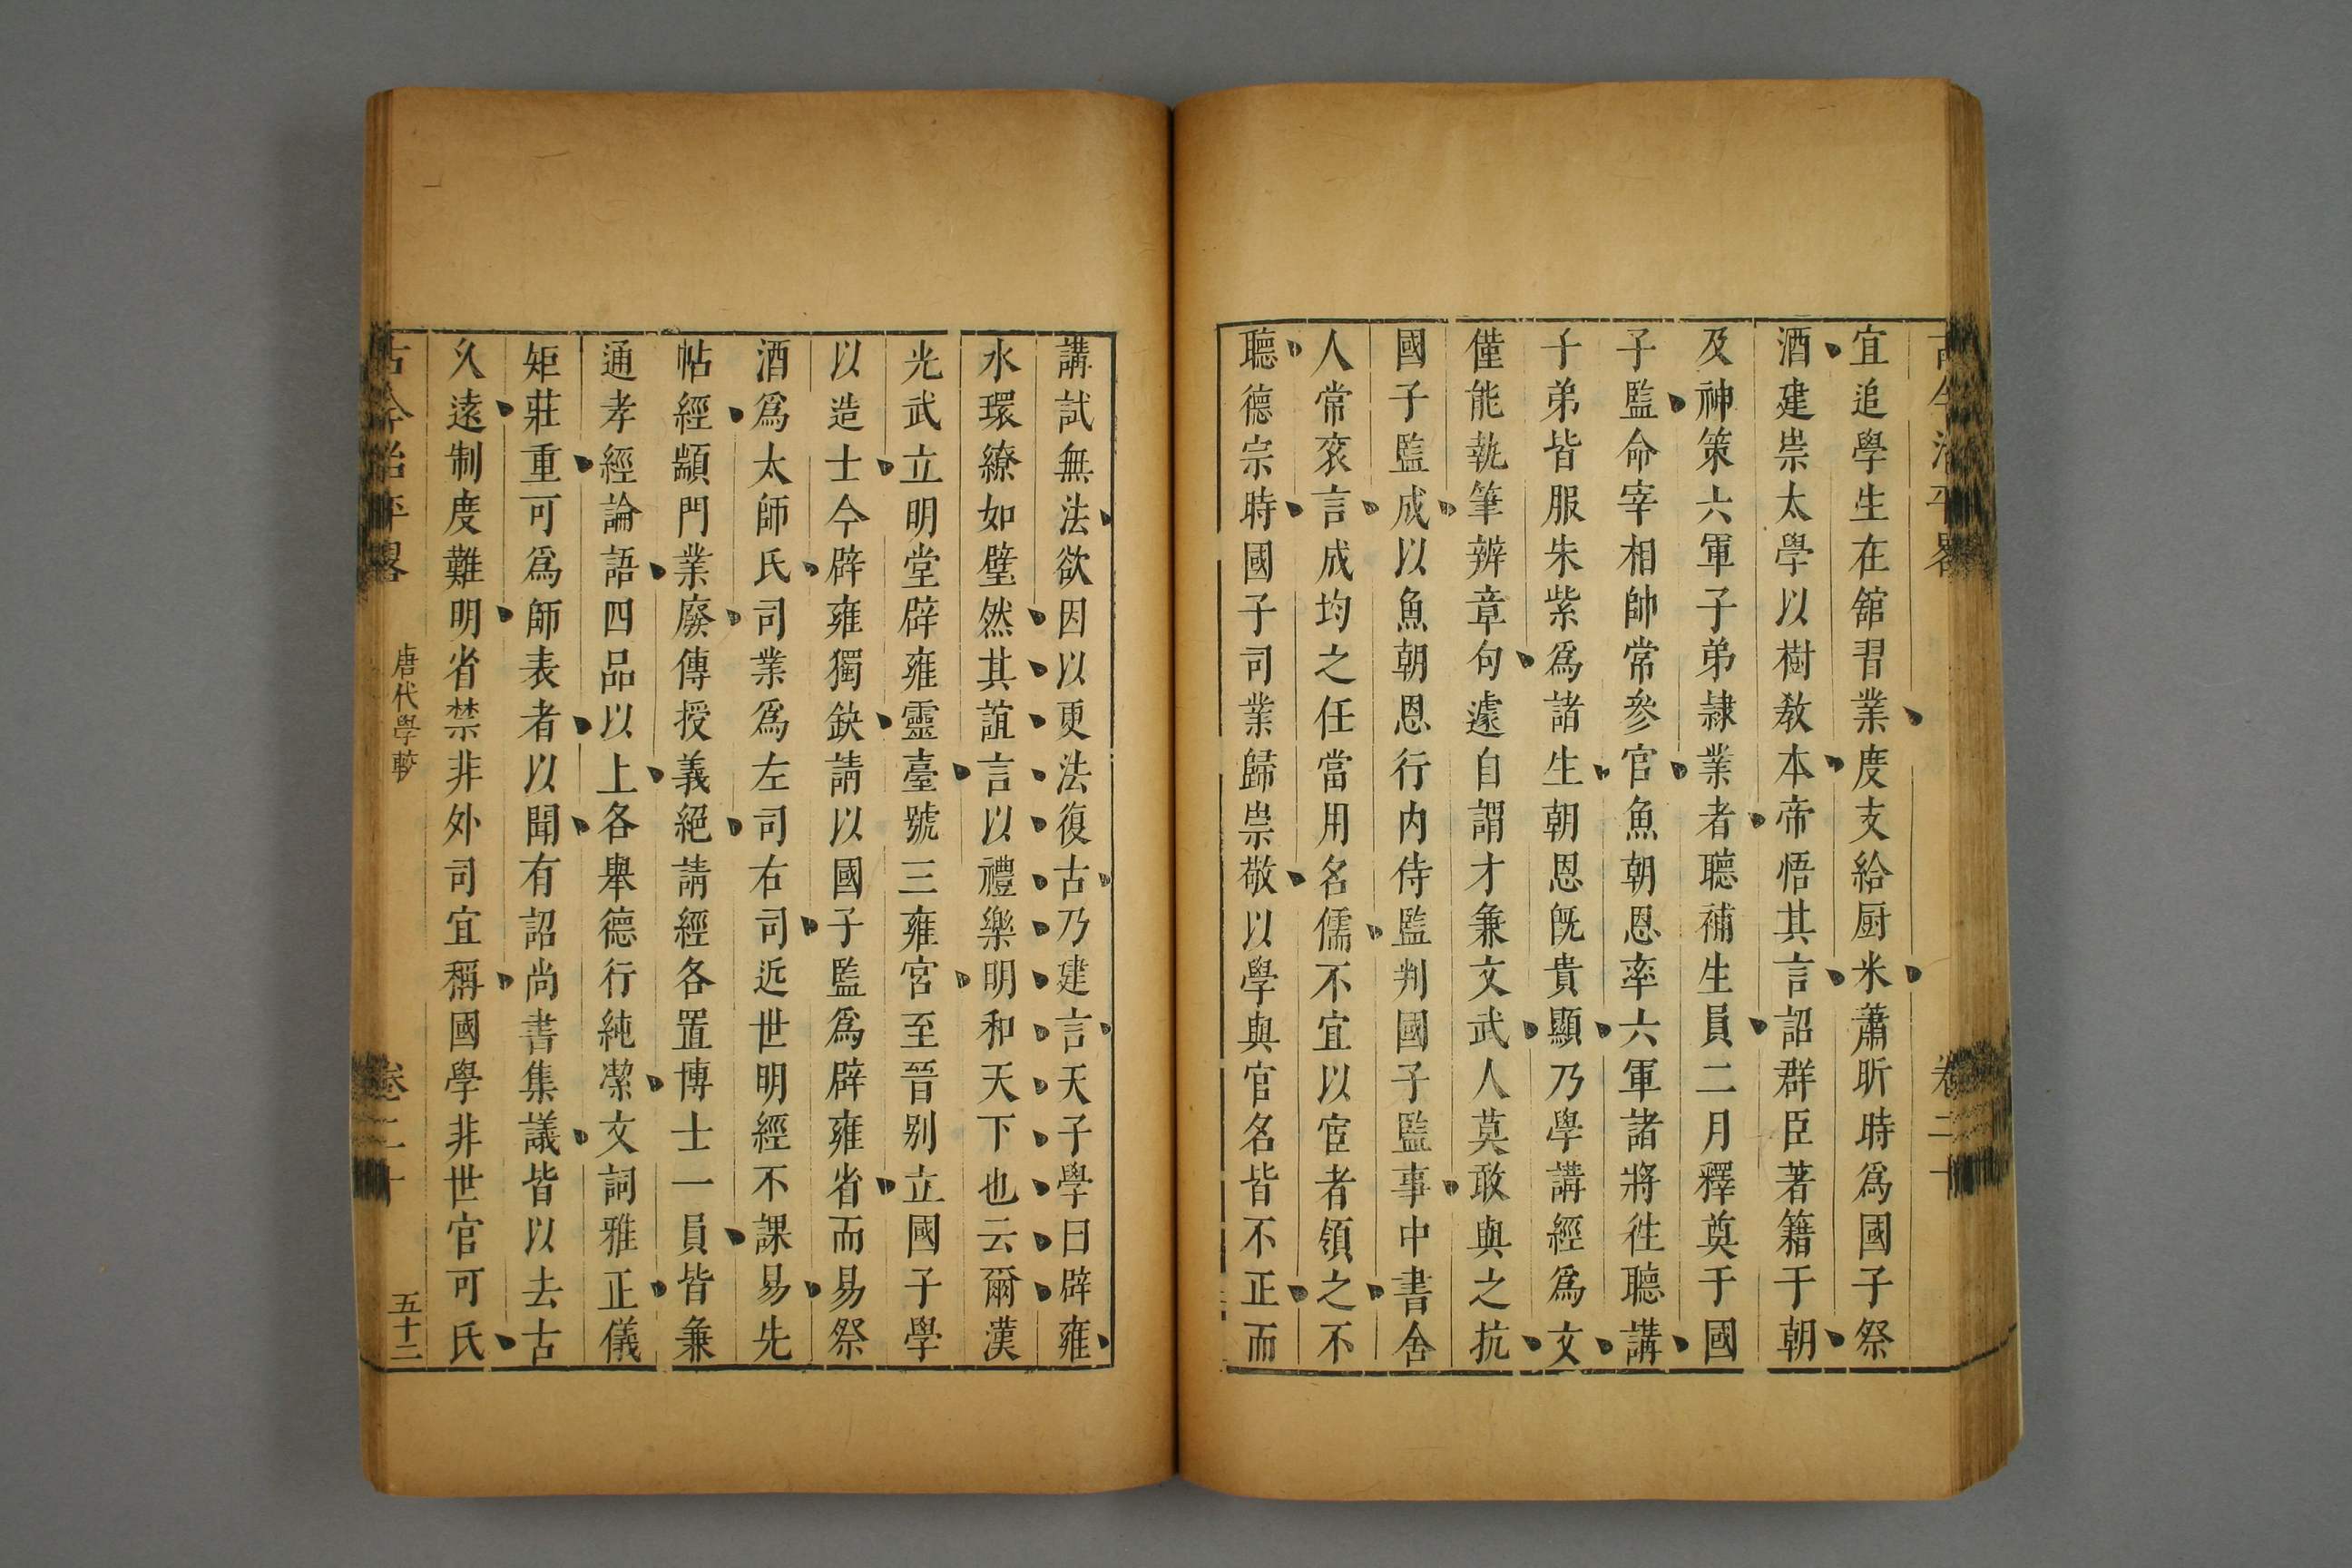 古今治平畧
卷二十
宜追學生在舘習業度支給厨米蕭昕時爲國子祭
酒建祟太學以樹敎本帝悟其言詔群臣著籍于朝
及神策六軍子弟隷業者聽補生員二月釋奠于國
子監命宰相帥常參官魚朝恩率六軍諸將徃聽講
子弟皆服朱紫爲諸生朝恩旣貴顯乃學講經爲文
僅能執筆辨章句遽自謂才兼文武人莫敢與之抗
國子監成以魚朝恩行内侍監判國子監事中書舍
人常衮言成均之任當用名儒不宜以宦者領之不
聽德宗時國子司業歸祟敬以學與官名皆不正而
講試無法欲因以更法復古乃建言天子學曰辟雍
水環繚如璧然其誼言以禮樂明和天下也云爾漢
光武立明堂辟雍靈臺號三雍宮至晉别立國子學
以造士今辟雍獨鈌請以國子監爲辟雍省而易祭
酒爲太師氏司業爲左司右司近世明經不課易先
帖經顓門業廢傳授義絕請經各置博士一員皆兼
通孝經論語四品以上各舉德行純潔文詞雅正儀
矩莊重可爲師表者以聞有詔尚書集議皆以去古
久遠制度難明省禁非外司宜稱國學非世官可氏
古今治平畧
唐代學較
卷二十
五十二